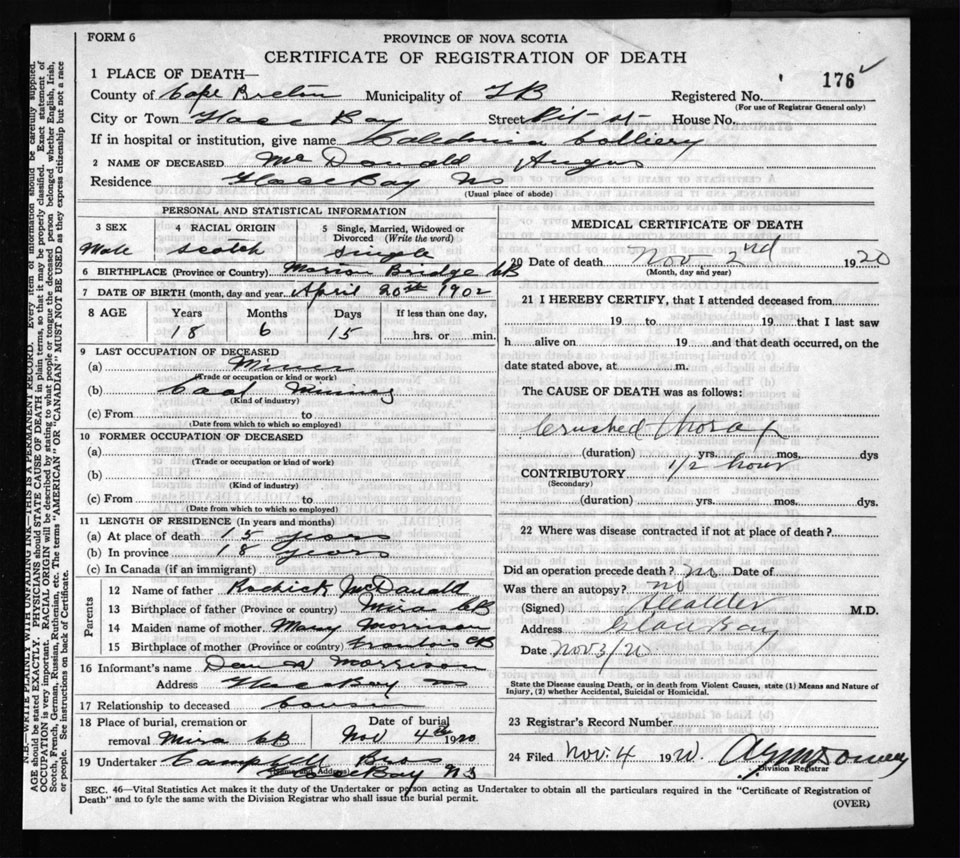 FORM 6
PROVINCE OF NOVA SCOTIA
CERTIFICATE OF REGISTRATION OF DEATH
176
1 PLACE OF DEATH—
County of Cape Breton Municipality of Registered No.
(For use of Registrar General only)
City or Town Glace Bay Street House No.
If in hospital or institution, give name Caledonia Colliery
2 NAME OF DECEASED McDonald Angus
Residence Glace Bay NS
(Usual place of abode)
PERSONAL AND STATISTICAL INFORMATION
3 SEX
Male
4 RACIAL ORIGIN
Scotch
5 Single, Married, Widowed or Divorced (Write the word)
Single
6 BIRTHPLACE (Province or Country) Marion Bridge CB
7 DATE OF BIRTH (month, day and year) April 20th 1902
8 AGE Years Months Days If less than one day,
18 6 15 hrs. or min.
9 LAST OCCUPATION OF DECEASED
(a) Miner
(Trade or occupation or kind of work)
(b) Coal Mining
(Kind of industry)
(c) From to
(Date from which to which so employed)
10 FORMER OCCUPATION OF DECEASED
(a)
(Trade or occupation or kind of work)
(b)
(Kind of industry)
(c) From to
(Date from which to which so employed)
11 LENGTH OF RESIDENCE (In years and months)
(a) At place of death 15 years
(b) In province 18 years
(c) In Canada (if an immigrant)
Parents
12 Name of father Rodrick McDonald
13 Birthplace of father (Province or country) Mira CB
14 Maiden name of mother Mary Morrison
15 Birthplace of mother (Province or country) CB
16 Informant's name Dan Morrison
Address Glace Bay NS
17 Relationship to deceased Cousin
18 Place of burial, cremation or removal Mira CB
Date of burial Nov 4th 1920
19 Undertaker Campbell Bros
(Name and Address) Glace Bay NS
MEDICAL CERTIFICATE OF DEATH
20 Date of death Nov. 2nd 1920
(Month, day and year)
21 I HEREBY CERTIFY, that I attended deceased from
19 to 19 that I last saw
h alive on 19 and that death occurred, on the
date stated above, at m.
The CAUSE OF DEATH was as follows:
Crushed thorax
(duration) yrs. mos. dys
CONTRIBUTORY 1/2 hour
(Secondary)
(duration) yrs. mos. dys.
22 Where was disease contracted if not at place of death?
Did an operation precede death? no Date of
Was there an autopsy? no
(Signed) M.D.
Address Glace Bay
Date Nov 3/20
State the Disease causing Death, or in death from Violent Causes, state (1) Means and Nature of
Injury, (2) whether Accidental, Suicidal or Homicidal.
23 Registrar's Record Number
24 Filed Nov. 4 1920
Division Registrar
SEC. 46—Vital Statistics Act makes it the duty of the Undertaker or person acting as Undertaker to obtain all the particulars required in the "Certificate of Registration of
Death" and to fyle the same with the Division Registrar who shall issue the burial permit.
(OVER)
N.B.—WRITE PLAINLY WITH UNFADING INK—THIS IS A PERMANENT RECORD. Every item of information should be carefully supplied.
AGE should be stated EXACTLY. PHYSICIANS should STATE CAUSE OF DEATH in plain terms, so that it may be properly classified. Exact statement of
OCCUPATION is very important. RACIAL ORIGIN will be described by stating to what people or tongue the deceased person belonged whether English, Irish,
Scotch, French, German, Russian, Ruthenian, etc. The terms "AMERICAN" OR "CANADIAN" MUST NOT BE USED as they express citizenship but not a race
or people. See instructions on back of Certificate.